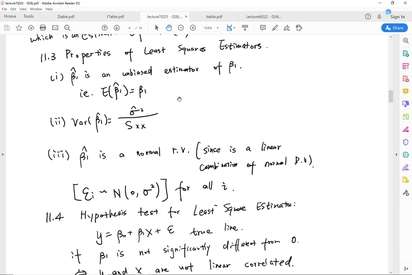 lecture0725 - 028L.pdf - Adobe Acrobat Reader DC
File Edit View Window Help
Home Tools Ztable.pdf tTable.pdf lecture0725 - 028L... ttable.pdf lecture0322 - 028L...
Sign In
Share
11.3 Properties of Least Squares Estimators.
(i) β̂₁ is an unbiased estimator of β₁
ie. E(β̂₁) = β₁
(ii) Var(β̂₁) = σ̂² / Sxx
(iii) β̂₁ is a normal r.v. (since is a linear
combination of normal r.v.)
[εi ~ N(0, σ²)] for all i.
11.4 Hypothesis test for Least Square Estimator:
y = β₀ + β₁x + ε true line.
if β₁ is not significantly different from 0.
⇔ y and X are not linear correlated.